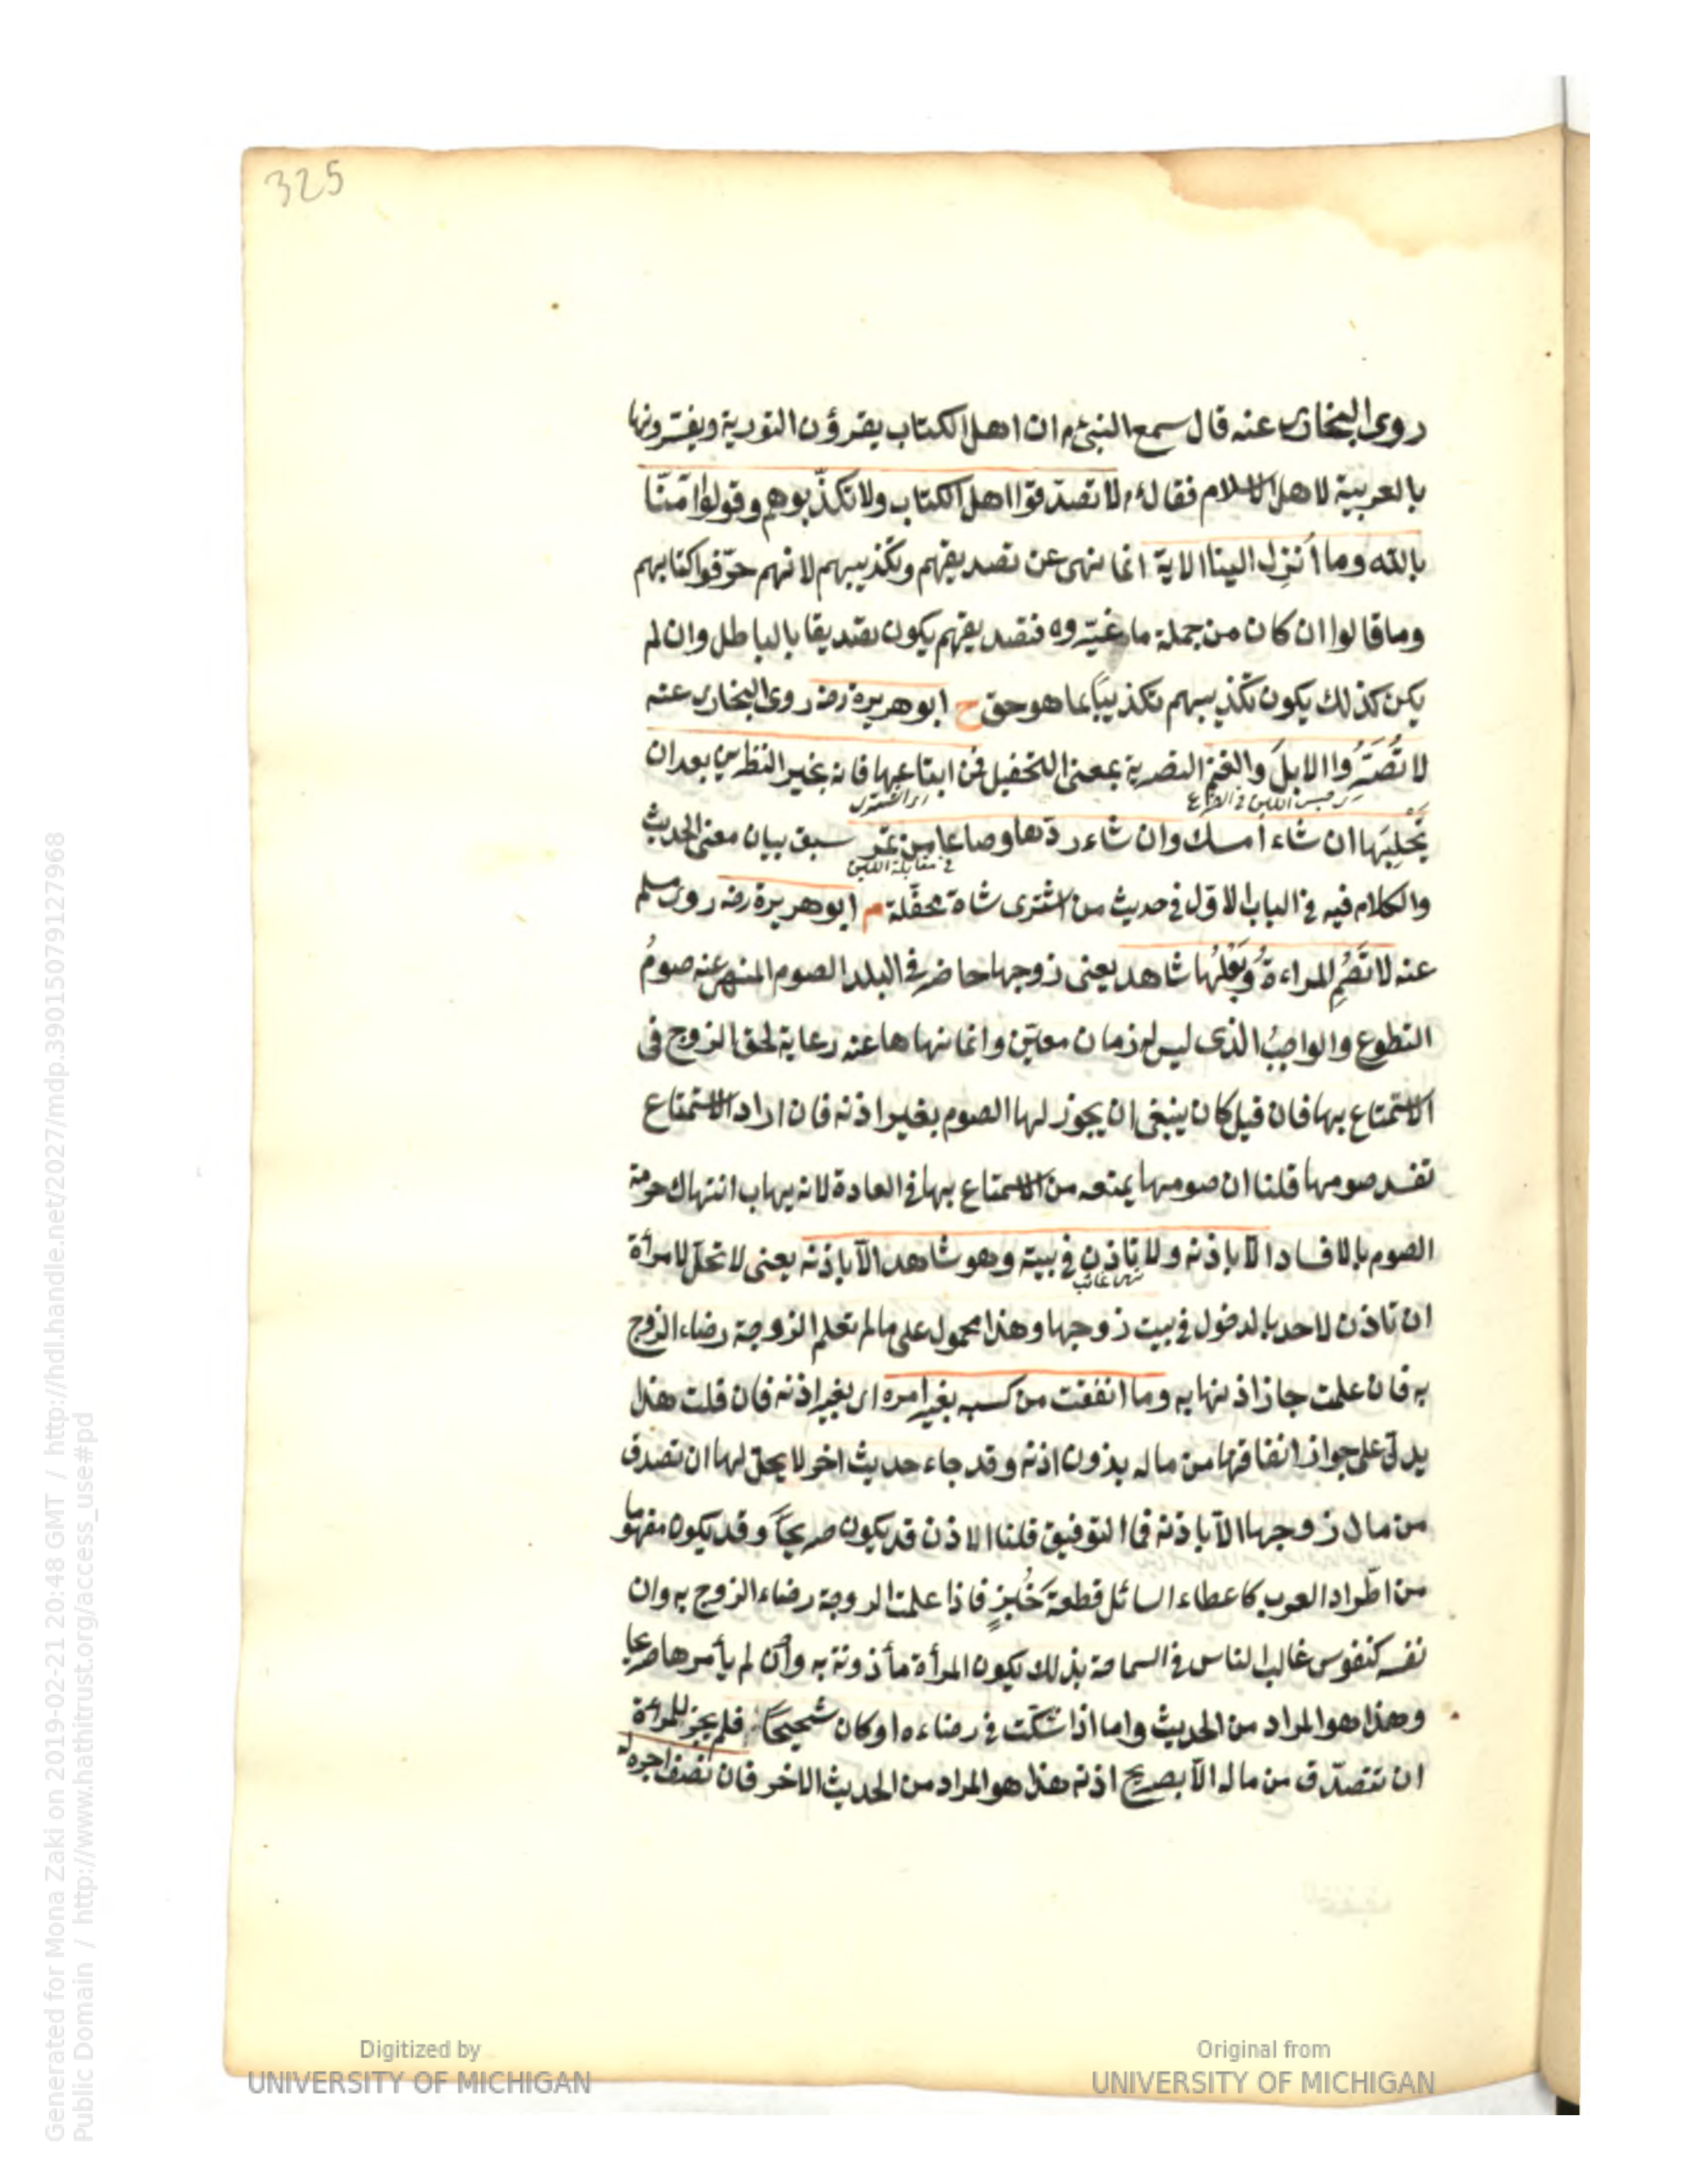 325
روى البخارى عنه قال سمع النبىء م ان اهل الكتاب يقرؤن التورية ويفسرونها
بالعربية لاهل الاسلام فقال ء م لا تصدقوا اهل الكتاب ولا تكذّبوهم وقولوا آمنّا
بالله وما أُنزِل الينا الاية انما نهى عن تصديقهم وتكذيبهم لانهم حرّفوا كتابهم
وما قالوا ان كان من جملة ما غيّروه فتصديقهم يكون تصديقا بالباطل وان لم
يكن كذلك يكون تكذيبهم تكذيبًا بما هو حق خ ابو هريرة رضه روى البخارى عنه
لا تُصَرُّوا الابلَ والغنمَ التصرية بمعنى التحفيل فمن ابتاعها فانه بخير النظرين بعد ان
اى حبس اللبن فى الضرع اى اشترى
يَحْلِبَها ان شاء أمسك وان شاء ردّها وصاعا من تمر سبق بيان معنى الحديث
فى مقابلة اللبن
والكلام فيه فى الباب الاول فى حديث من اشترى شاة محفّلة م ابو هريرة رضه روى مسلم
عنه لا تَصُمِ المراءةُ وبَعْلُها شاهد يعنى زوجها حاضر فى البلد الصوم المنهى عنه صومُ
التطوع والواجبُ الذى ليس له زمان معيّن وانما نهاها عنه رعاية لحق الزوج فى
الاستمتاع بها فان قيل كان ينبغى ان يجوز لها الصوم بغير اذنه فان اراد الاستمتاع
تفسد صومها قلنا ان صومها يمنعه من الاستمتاع بها فى العادة لانه يهاب انتهاك حرمة
الصوم بالافساد الا باذنه ولا تاذن فى بيته وهو شاهد الاّ باذنه يعنى لا تحلّ لامرأة
ان تاذن لاحد بالدخول فى بيت زوجها وهذا محمول على ما لم تعلم الزوجة رضاء الزوج
به فان علمت جاز اذنها به وما انفقت من كسبه بغير امره اى بغير اذنه فان قلت هذا
يدلّ على جواز انفاقها من ماله بدون اذنه وقد جاء حديث اخر لا يحلّ لها ان تصدق
من مال زوجها الاّ باذنه فما التوفيق قلنا الاذن قد يكون صريحًا وقد يكون مفهوما
من اطّراد العرب كاعطاء السائل قطعةَ خُبزٍ فاذا علمت الزوجة رضاء الزوج به وان
نفسه كنفوس غالب الناس فى السماحة بذلك يكون المرأة مأذونة به وان لم يأمرها صريحا
وهذا هو المراد من الحديث واما اذا شكّت فى رضاءه او كان شحيحًا فلم يجز للمرأة
ان تتصدّق من ماله الاّ بصريح اذنه هذا هو المراد من الحديث الاخر فان نصف اجره له
Digitized by
UNIVERSITY OF MICHIGAN
Original from
UNIVERSITY OF MICHIGAN
Generated for Mona Zaki on 2019-02-21 20:48 GMT / http://hdl.handle.net/2027/mdp.39015079127968
Public Domain / http://www.hathitrust.org/access_use#pd